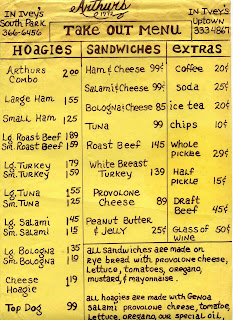 In Ivey's
South Park
366-6456
Arthurs
1972
In Ivey's
Uptown
333-4867
Take Out Menu
Hoagies
Arthurs Combo 2.00
Large Ham 1.55
Small Ham 1.25
Lg. Roast Beef 1.89
Sm. Roast Beef 1.59
Lg. Turkey 1.79
Sm. Turkey 1.59
Lg. Tuna 1.55
Sm. Tuna 1.25
Lg. Salami 1.45
Sm. Salami 1.15
Lg. Bologna 1.35
Sm. Bologna
Cheese Hoagie 1.19
Top Dog 99
Sandwiches
Ham & Cheese 99¢
Salami & Cheese 99¢
Bologna & Cheese 85
Tuna 99
Roast Beef 1.45
White Breast Turkey 1.39
Provolone Cheese 89
Peanut Butter & Jelly 25¢
extras
Coffee 20¢
Soda 25¢
ice tea 20¢
chips 10¢
Whole pickle 29¢
Half Pickle 15¢
Draft Beef 45¢
Glass of wine 50¢
all sandwiches are made on
rye bread with provolone cheese,
Lettuce, tomatoes, oregano,
mustard, & mayonnaise.
all hoagies are made with Genoa
salami, provolone cheese, tomatoe,
Lettuce, oregano, our special oil,